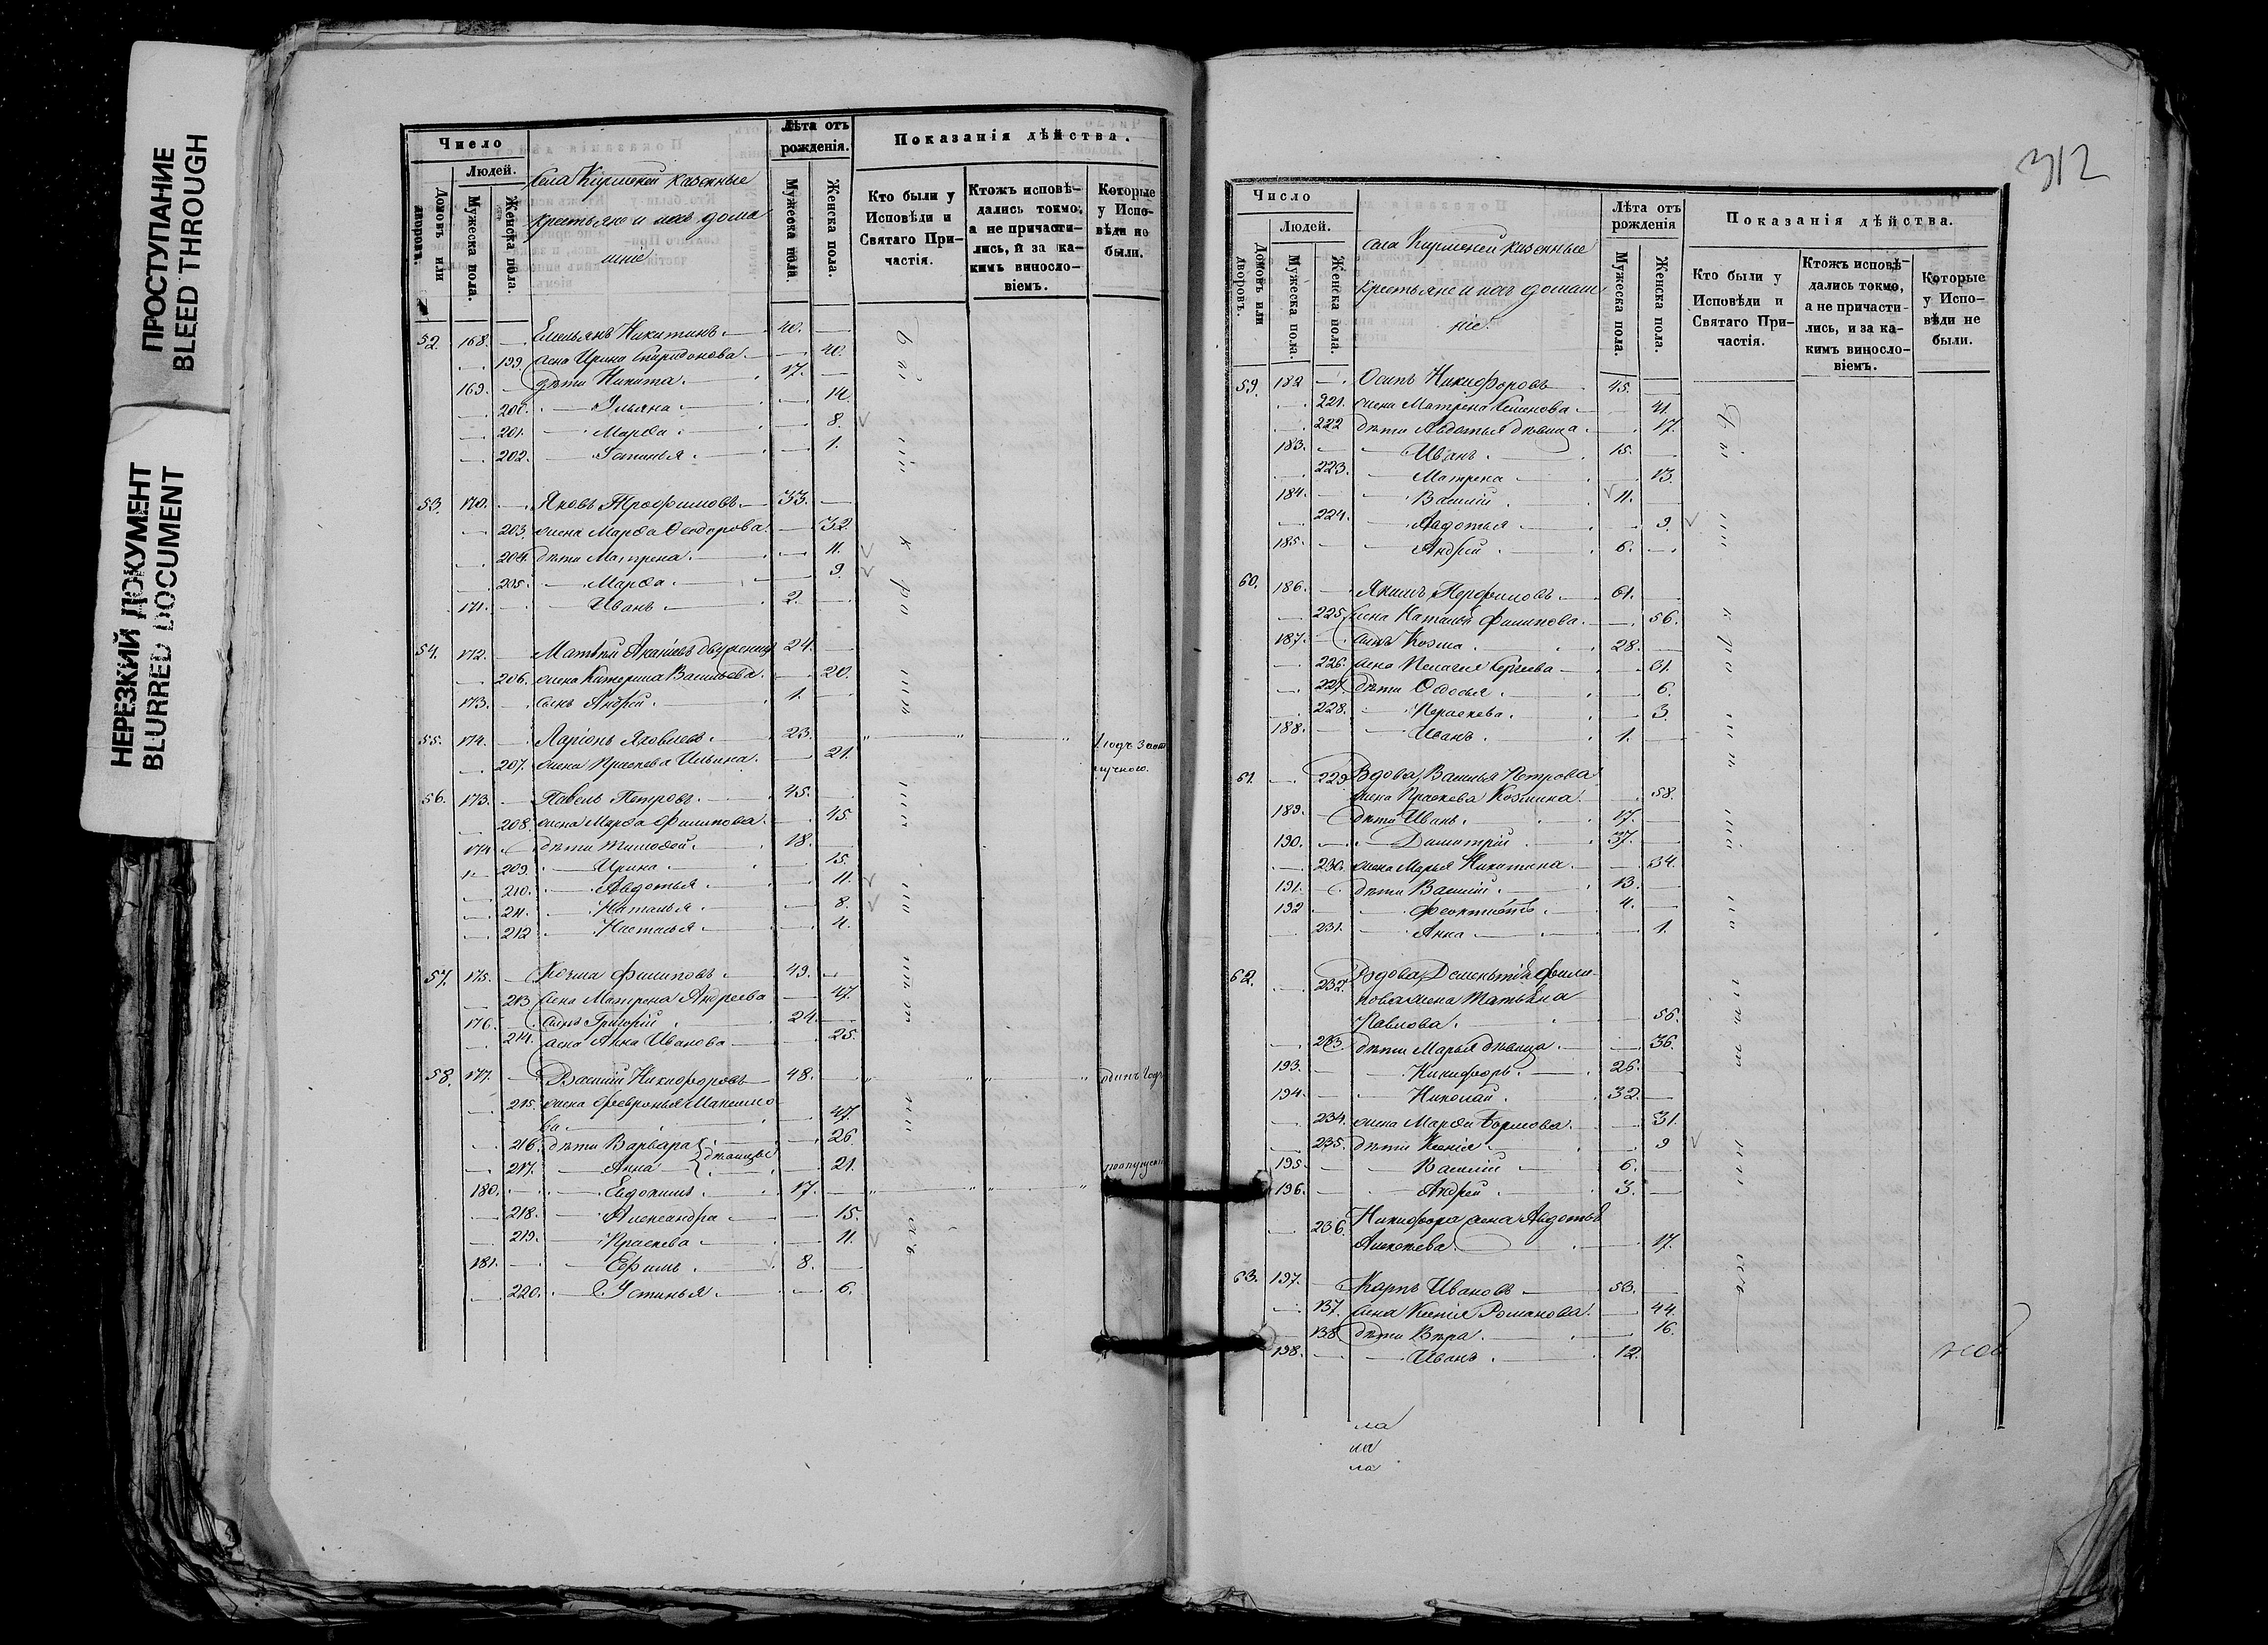 ПРОСТУПАНИЕ
BLEED THROUGH
НЕРЕЗКИЙ ДОКУМЕНТ
BLURRED DOCUMENT
Число
Людей.
Домовъ или дворовъ.
Мужеска пола.
Женска пола.
Села казенные
крестьяне и ихъ дома
шніе
Лѣта отъ
рожденія.
Мужеска пола.
Женска пола.
Показанія дѣйства.
Кто были у
Исповѣди и
Святаго При-
частія.
Ктожъ исповѣ-
дались токмо,
а не причасти-
лись, и за ка-
кимъ винсло-
віемъ.
Которые
у Испо-
вѣди не
были.
52. 168. Емельянъ Никитинъ. 40.
199. жена Ирина Спиридонова. 40.
169. дѣти Никита. 17.
200. Ульяна. 14.
201. Марѳа. 8.
202. Устинья. 1.
53. 170. Яковъ Трофимовъ 33.
203. жена Марѳа Ѳеодорова. 32.
204. дѣти Матрена. 11.
205. Марѳа. 9.
171. Иванъ. 2.
54. 172. Матѳей 24.
206. жена Катерина Васильева. 20.
173. сынъ Андрей. 1.
55. 174. Ларіонъ Яковлевъ. 23.
207. жена Праскева Ильина. 21.
56. 173. Павелъ Петровъ. 45.
208. жена Марѳа Филипова. 45.
174. дѣти Тимоѳей. 18.
209. Ирина. 15.
210. Авдотья. 11.
211. Наталья. 8.
212. Настасья. 4.
57. 175. Козма Филиповъ. 49.
213. жена Матрена Андреева 47.
176. сынъ Григорій. 24.
214. жена Анна Иванова 25.
58. 177. Василій Никифоровъ 48. одинъ годъ
215. жена Февронья Максимо
ва. 47.
216. дѣти Варвара 26.
217. Анна дѣвицы 21.
180. Евдокимъ. 17.
218. Александра 15.
219. Праскева 11.
181. Ефимъ. 8.
220. Устинья. 6.
312
Число
Людей.
Домовъ или дворовъ.
Мужеска пола.
Женска пола.
села казенные
крестьяне и ихъ домаш
ніе.
Лѣта отъ
рожденія
Мужеска пола.
Женска пола.
Показанія дѣйства.
Кто были у
Исповѣди и
Святаго При-
частія.
Ктожъ исповѣ-
дались токмо,
а не причасти-
лись, и за ка-
кимъ винсло-
віемъ.
Которые
у Испо-
вѣди не
были.
59. 182. Осипъ Никифоровъ 45.
221. жена Матрена Семенова. 41.
222. дѣти Авдотья дѣвица. 17.
183. Иванъ. 15.
223. Матрена 13.
184. Василій. 11.
224. Авдотья 9.
185. Андрей. 6.
60. 186. Якимъ Перфиловъ. 61.
225. жена Наталья Филипова. 56.
187. сынъ Козма. 28.
226. жена Пелагея Сергеева 31.
227. дѣти Ѳедосья. 6.
228. Праскева. 3.
188. Иванъ. 1.
61. 229. Вдова Василья Петрова
жена Праскева Козмина. 58.
189. дѣти Иванъ. 17.
190. Димитрій. 37.
230. жена Марья Никитина. 34.
191. дѣти Василій. 13.
192. Феоктистъ. 4.
231. Анна 1.
62. 232. Вдова Дементія Фили
пова жена Татьяна
Павлова. 56.
233. дѣти Марья дѣвица. 36.
193. Никифоръ. 26.
194. Николай. 32.
234. жена Марѳа 31.
235. дѣти Ксенія. 9
195. Василій 6.
196. Андрей 3.
236. Никифора жена Авдотья
Алексеева. 17.
63. 197. Карпъ Ивановъ 53.
137. жена Ксенія Романова. 44.
138. дѣти Вѣра. 16.
198. Иванъ. 12.
ла
ла
ла